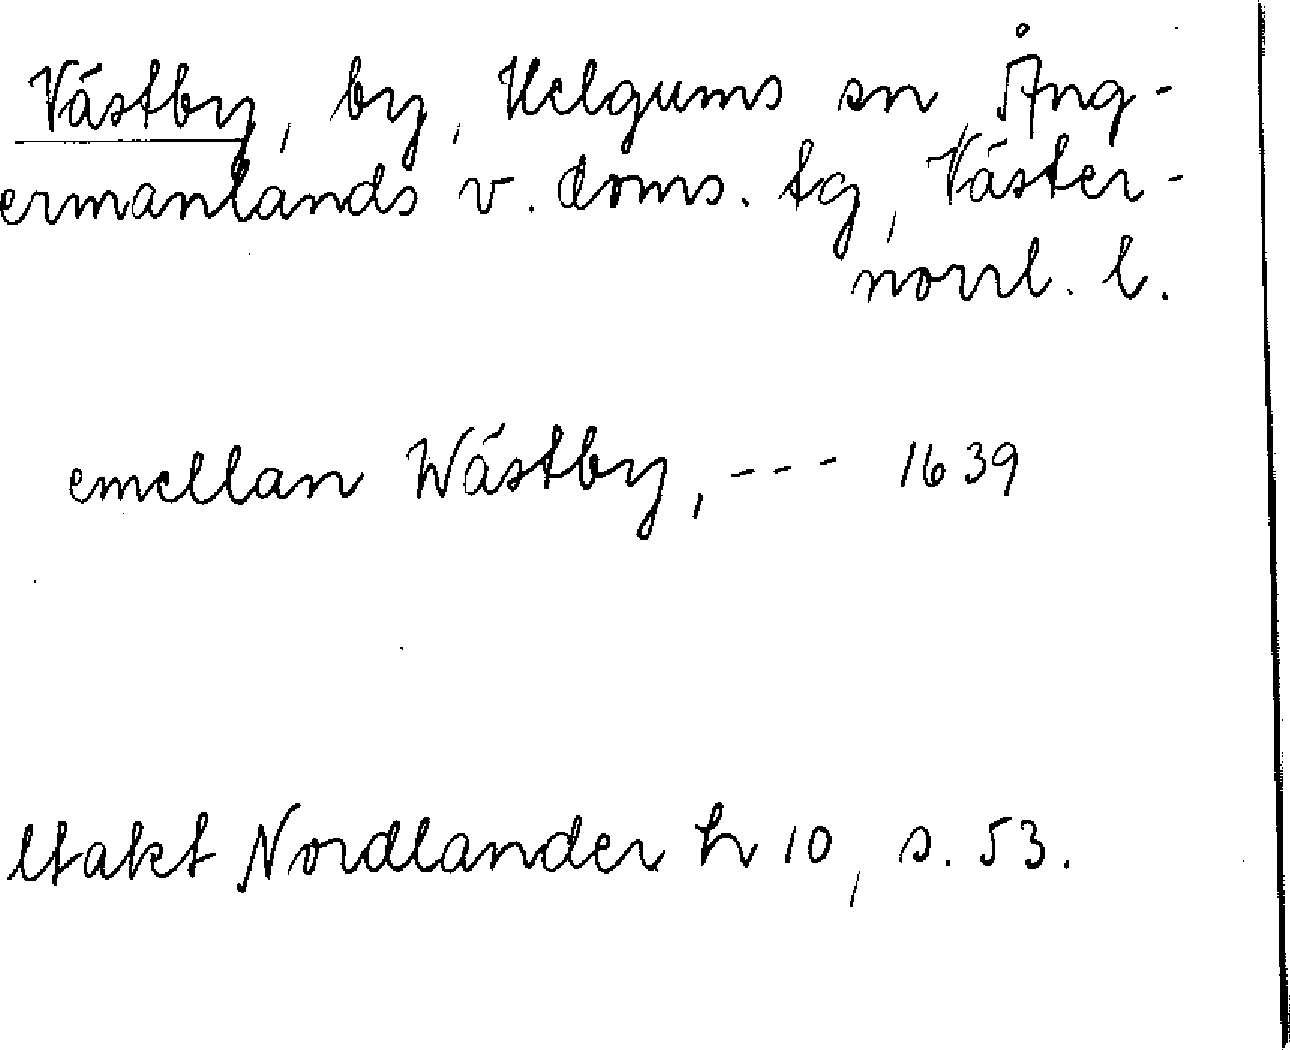 Västby, by, Helgums sn, Ång-
ermanlands v. doms. tg, Väster-
norrl. l.
emellan Wästby, --- 1639
Utakt Nordlander h 10, s. 53.